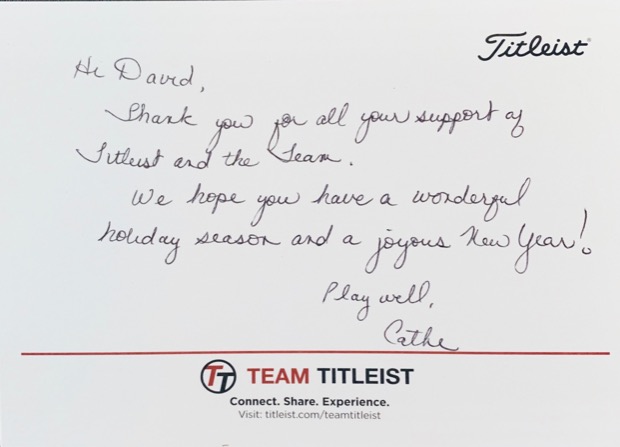 Titleist
Hi David,
Thank you for all your support of
Titleist and the Team.
We hope you have a wonderful
holiday season and a joyous New Year!
Play well,
Cathe
TT TEAM TITLEIST
Connect. Share. Experience.
Visit: titleist.com/teamtitleist